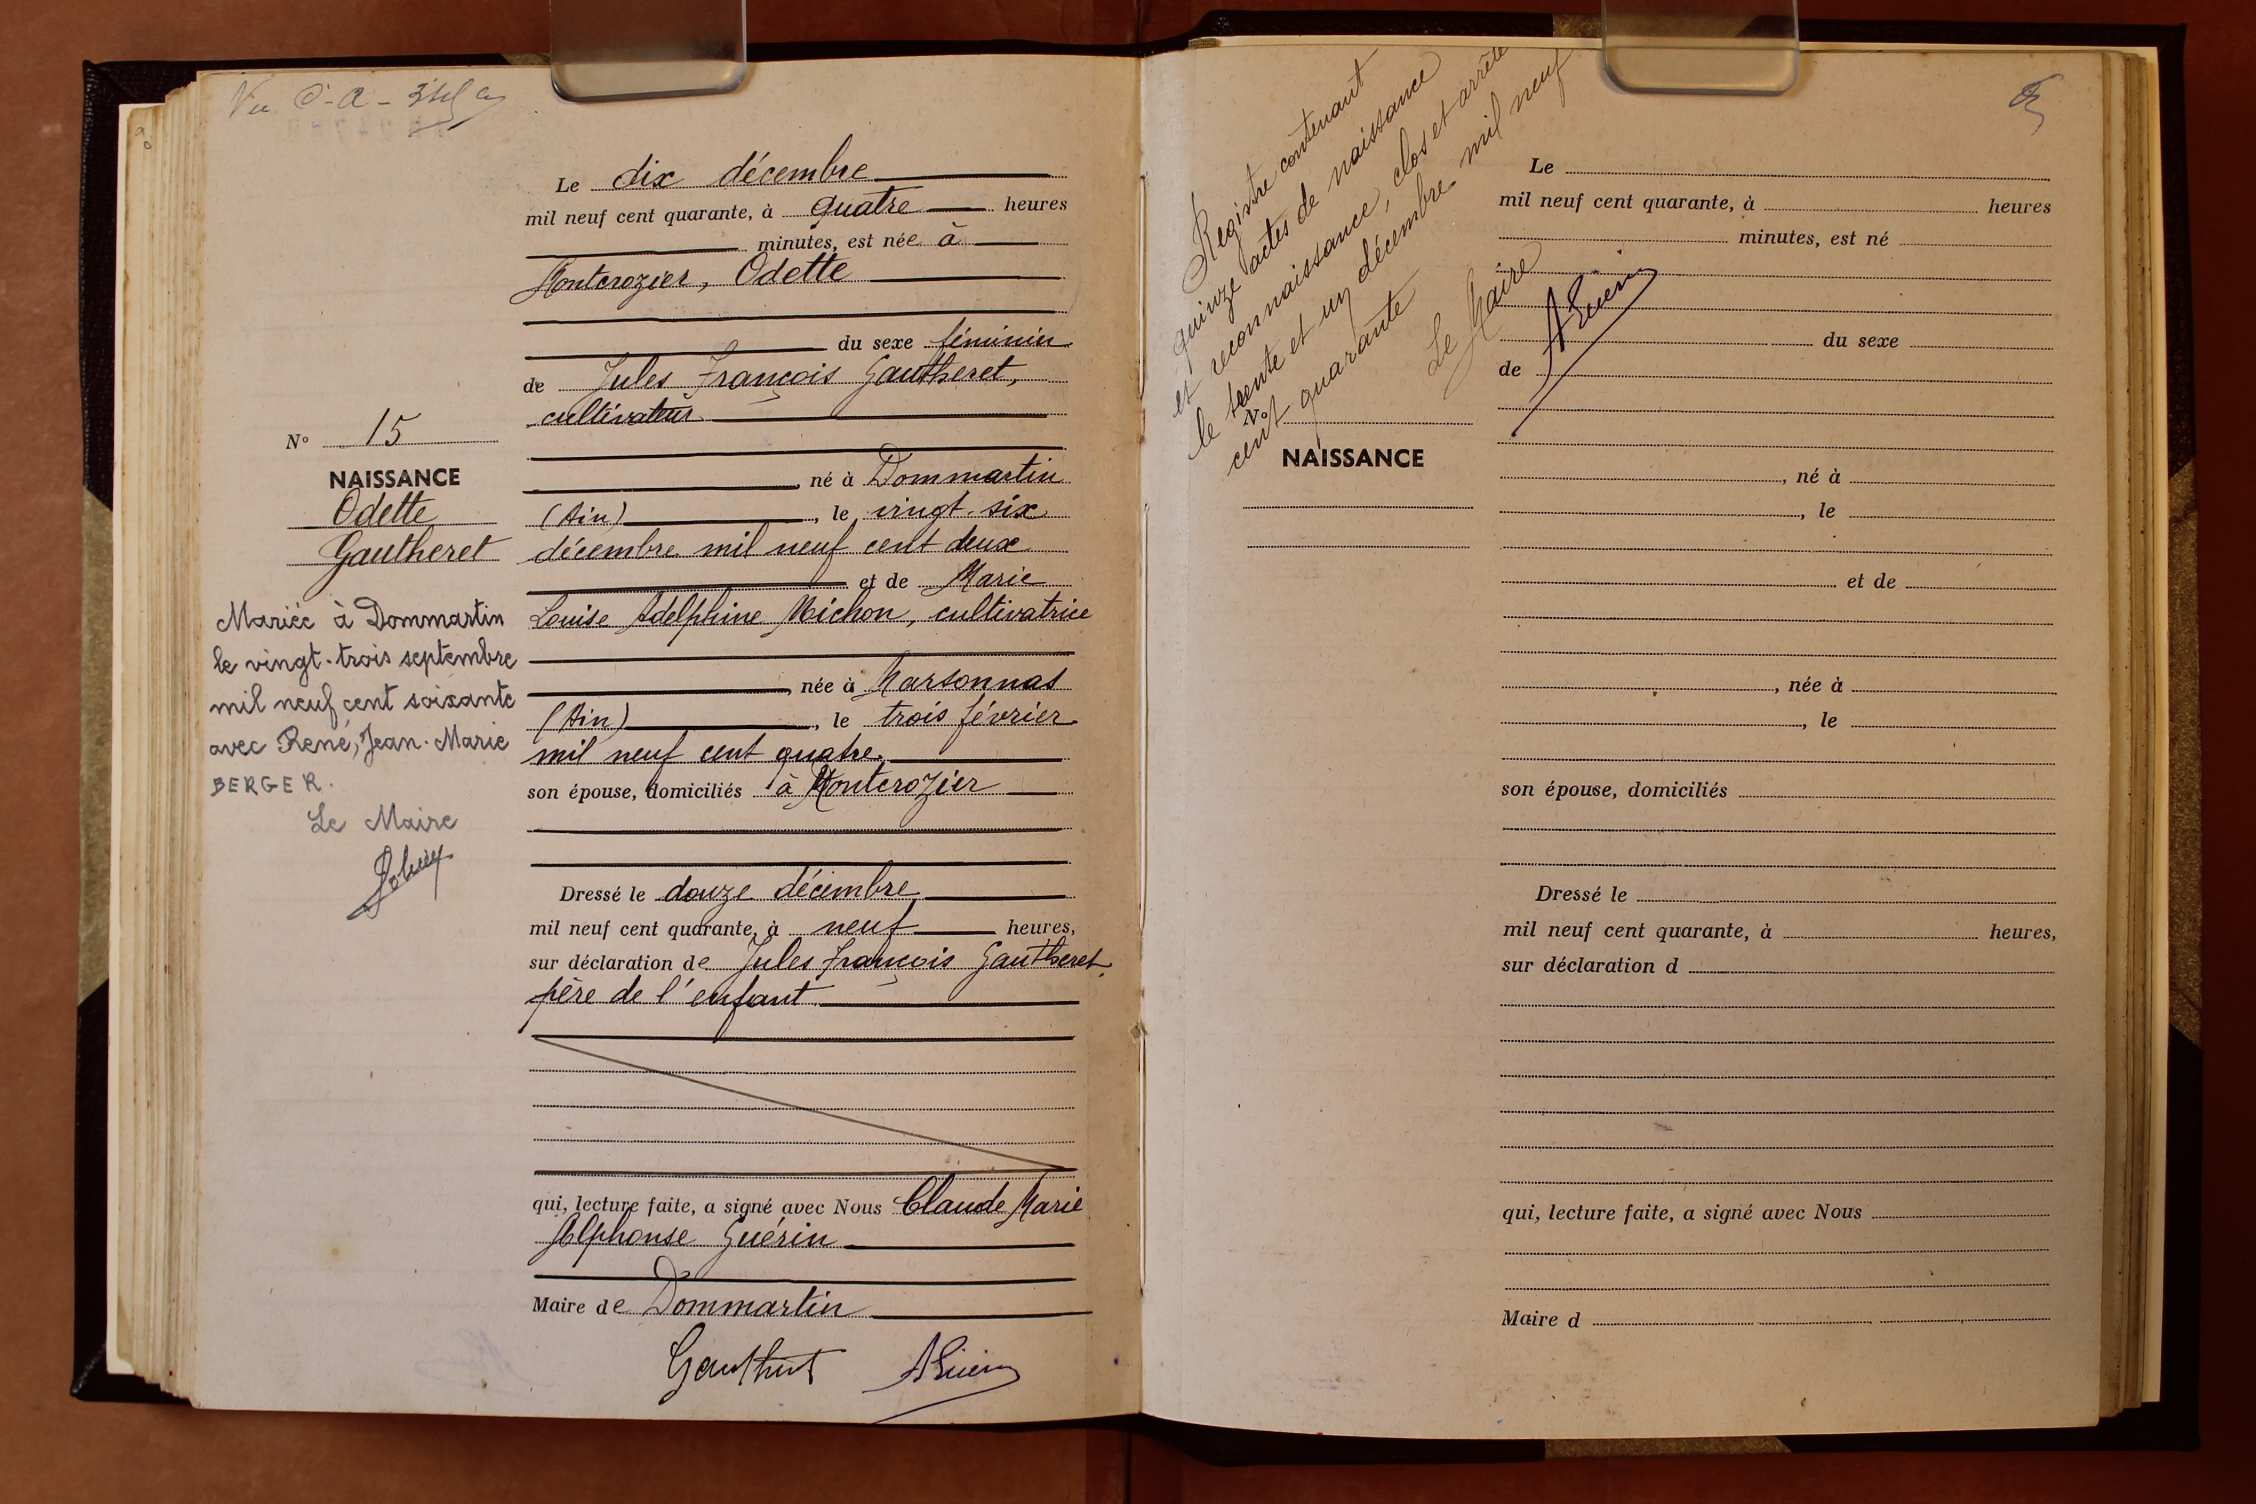 Vu
Le dix décembre
mil neuf cent quarante, à quatre heures
minutes, est née à
Montcrozier, Odette
du sexe féminin
de Jules François Gautheret,
cultivateur
né à Dommartin
(Ain), le vingt-six
décembre mil neuf cent deux
et de Marie
Louise Adelphine Michon, cultivatrice
, née à Marsonnas
(Ain), le trois février
mil neuf cent quatre,
son épouse, domiciliés à Montcrozier
Dressé le douze décembre
mil neuf cent quarante, à neuf heures,
sur déclaration de Jules François Gautheret,
père de l'enfant
qui, lecture faite, a signé avec Nous Claude Marie
Alphonse Guérin
Maire de Dommartin
Gautheret AGuérin
N° 15
NAISSANCE
Odette
Gautheret
Mariée à Dommartin
le vingt-trois septembre
mil neuf cent soixante
avec René, Jean-Marie
BERGER.
Le Maire
Registre contenant
quinze actes de naissance
et reconnaissance, clos et arrêté
le trente et un décembre mil neuf
cent quarante
Le Maire
AGuérin
N°
NAISSANCE
Le
mil neuf cent quarante, à heures
minutes, est né
du sexe
de
, né à
, le
et de
, née à
, le
son épouse, domiciliés
Dressé le
mil neuf cent quarante, à heures,
sur déclaration d
qui, lecture faite, a signé avec Nous
Maire d